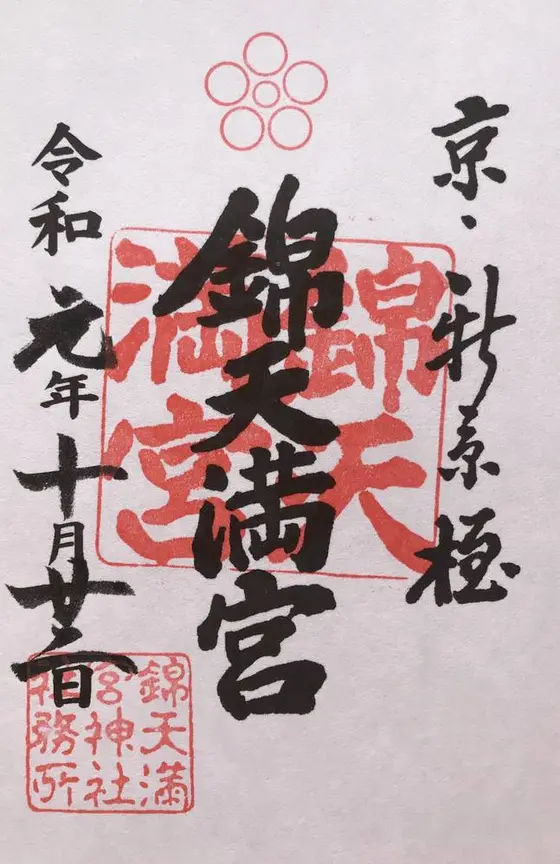 京、新京極
錦天満宮
錦天
満宮
令和元年十月廿二日
錦天満
宮神社
社務所